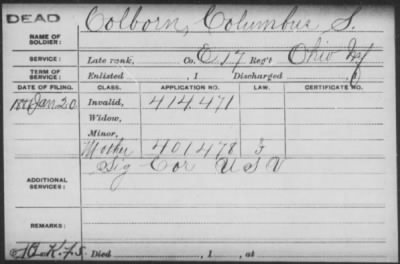 DEAD
NAME OF SOLDIER: Colborn, Columbus S.
SERVICE: Late rank, Co. E, 17 Reg't Ohio Inf
TERM OF SERVICE: Enlisted , 1 Discharged , 1
DATE OF FILING. CLASS. APPLICATION NO. LAW. CERTIFICATE NO.
Jan 20 Invalid, 414.471
Widow,
Minor,
Mother 401478 F
ADDITIONAL SERVICES: Sig Cor U S V
REMARKS:
Died , 1 , at